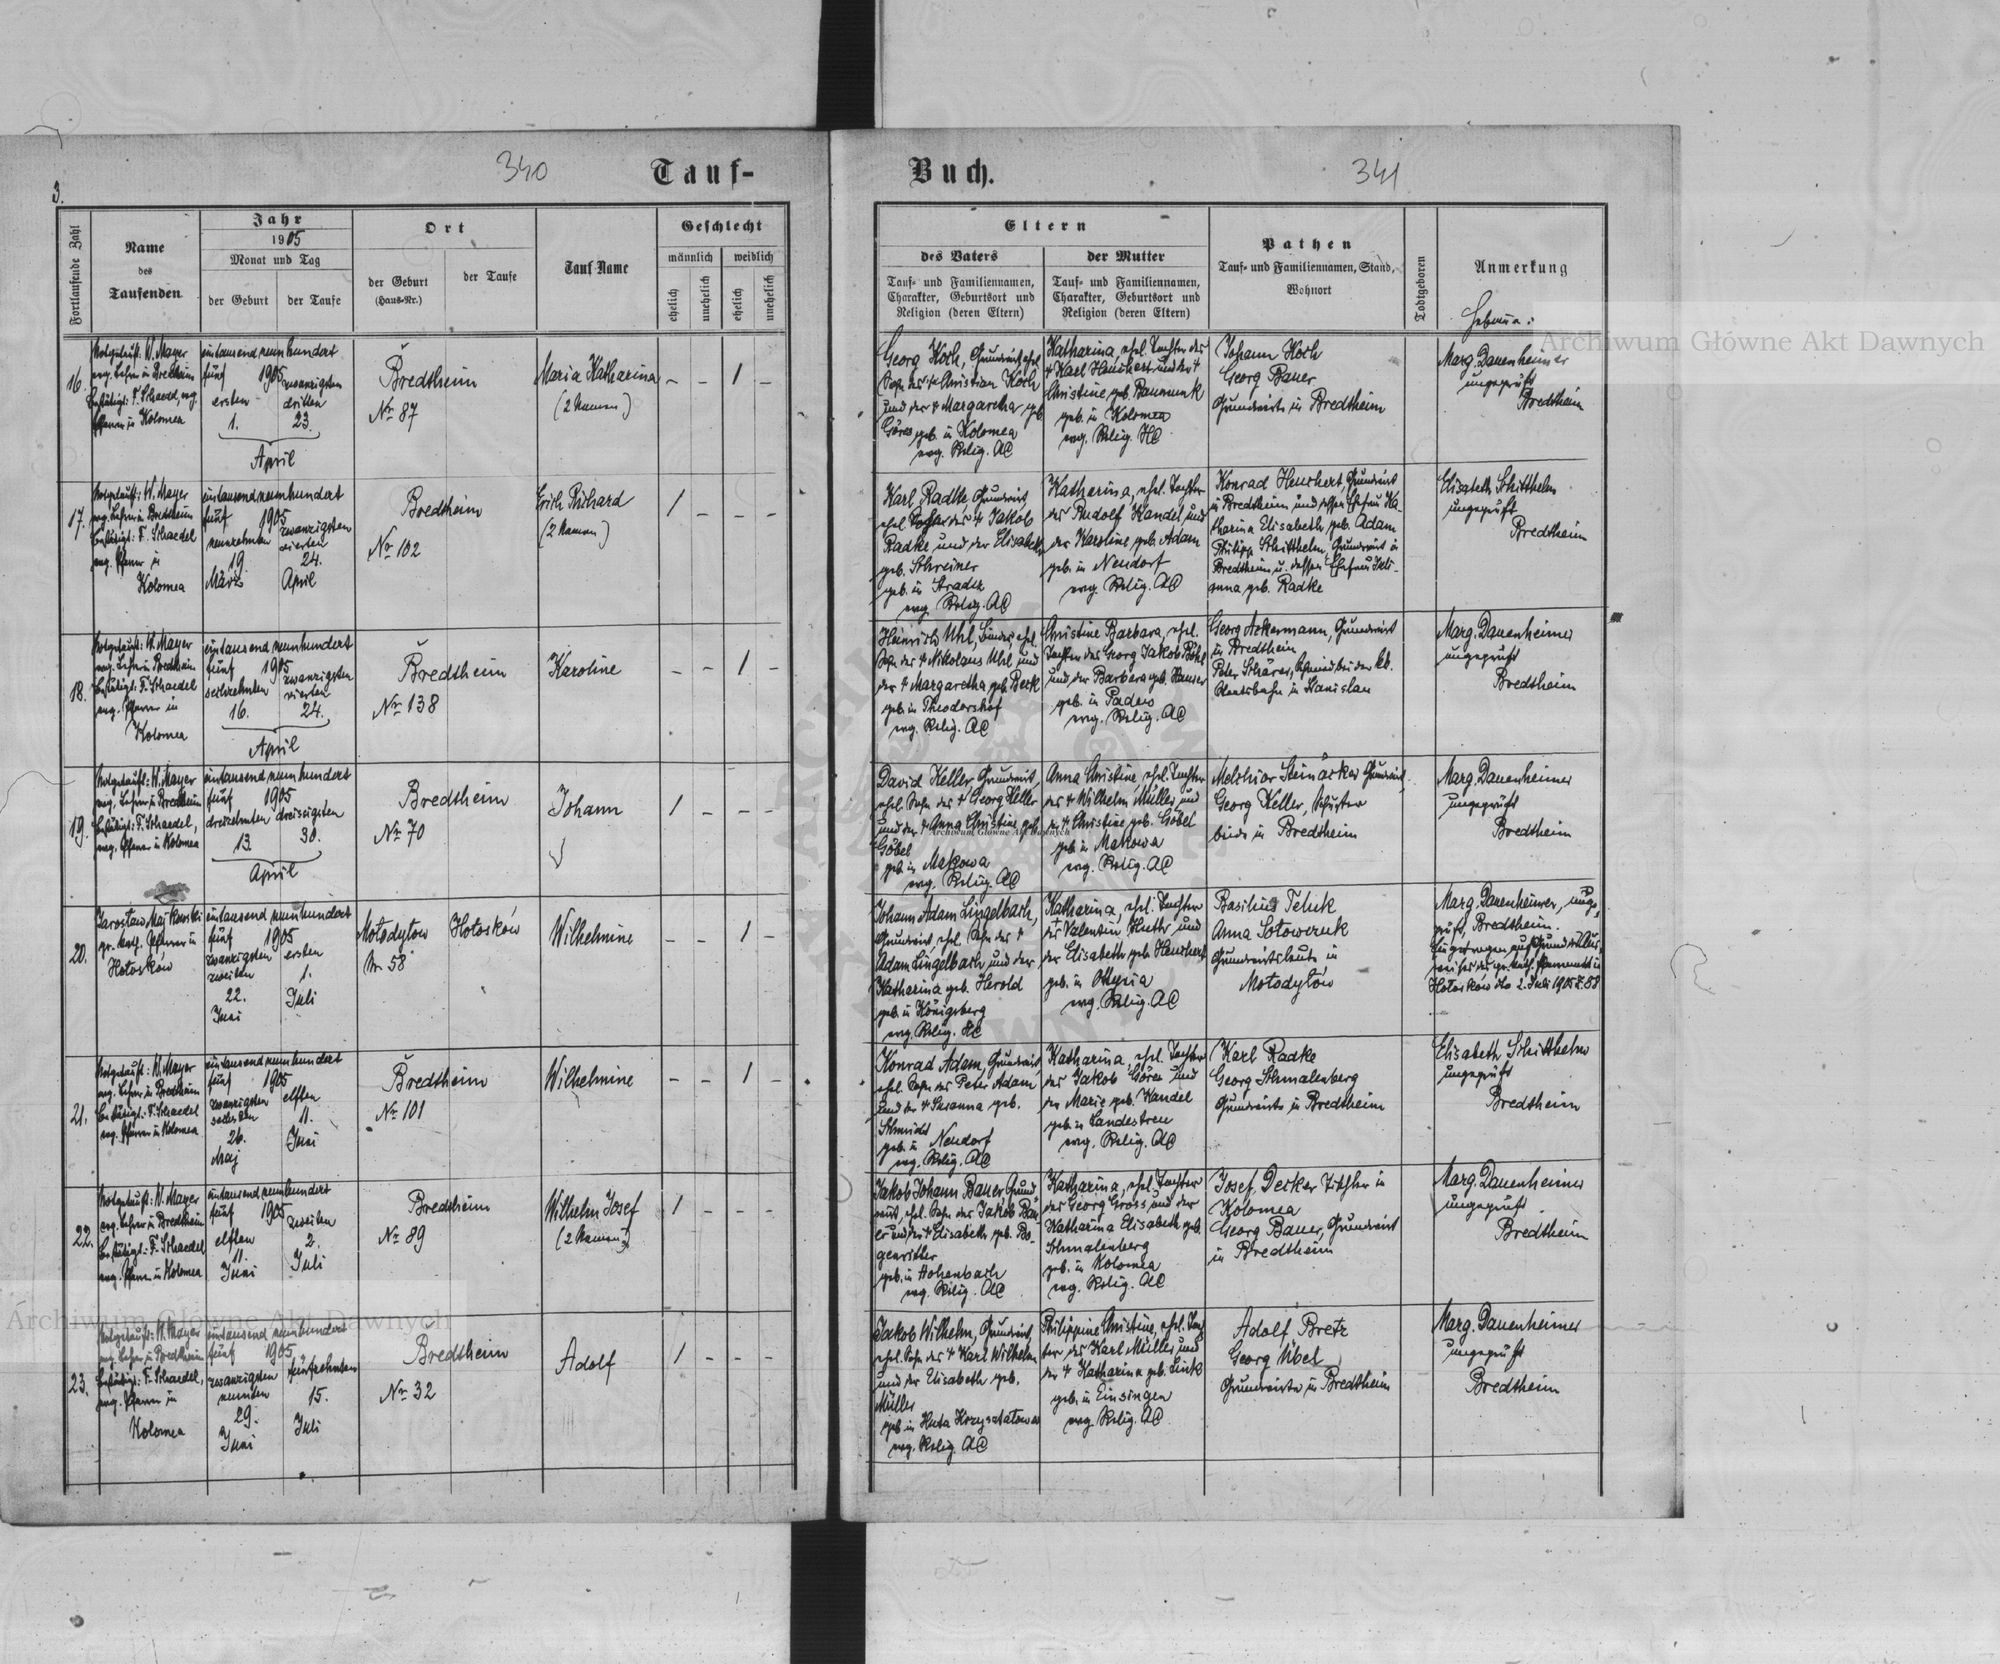 340
Tauf-
3.
Fortlaufende Zahl
Name
des
Taufenden
Jahr
1905
Monat und Tag
der Geburt
der Taufe
Ort
der Geburt
(Haus-Nr.)
der Taufe
Tauf-Name
Geschlecht
männlich
weiblich
ehelich
unehelich
ehelich
unehelich
16.
Notgetauft: W. Mayer
evg. Lehrer in Bredtheim
bestätigt: F. Schaedel, evg.
Pfarrer in Kolomea
eintausend neunhundert
fünf 1905
ersten
1.
zwanzigsten
dritten
23.
April
Bredtheim
Nr 87
Maria Katharina
(2 Namen)
– – 1 –
17.
Notgetauft: W. Mayer
evg. Lehrer in Bredtheim
bestätigt: F. Schaedel
evg. Pfarrer in
Kolomea
eintausend neunhundert
fünf 1905
neunzehnten
19.
März
zwanzigsten
vierten
24.
April
Bredtheim
Nr 102
Erich Richard
(2 Namen)
1 – – –
18.
Notgetauft: W. Mayer
evg. Lehrer in Bredtheim
bestätigt: F. Schaedel
evg. Pfarrer in
Kolomea
eintausend neunhundert
fünf 1905
sechzehnten
16.
zwanzigsten
vierten
24.
April
Bredtheim
Nr 138
Karoline
– – 1 –
19.
Notgetauft: W. Mayer
evg. Lehrer in Bredtheim
bestätigt: F. Schaedel,
evg. Pfarrer in Kolomea
eintausend neunhundert
fünf 1905
dreizehnten dreissigsten
13. 30.
April
Bredtheim
Nr 70
Johann
1 – – –
20.
Jarosław Majkowski
gr. kath. Pfarrer in
Hołosków
eintausend neunhundert
fünf 1905
zwanzigsten
zweiten
22.
Juni
ersten
1.
Juli
Mołodyłow
Nr 58
Hołosków
Wilhelmine
– – 1 –
21.
Notgetauft: W. Mayer
evg. Lehrer in Bredtheim
bestätigt: F. Schaedel
evg. Pfarrer in Kolomea
eintausend neunhundert
fünf 1905
zwanzigsten
sechsten
26.
Maj
elften
11.
Juni
Bredtheim
Nr 101
Wilhelmine
– – 1 –
22.
Notgetauft: W. Mayer
evg. Lehrer in Bredtheim
bestätigt: F. Schaedel
evg. Pfarrer in Kolomea
eintausend neunhundert
fünf 1905
elften
11.
Juni
zweiten
2.
Juli
Bredtheim
Nr 89
Wilhelm Josef
(2 Namen)
1 – – –
23.
Notgetauft: W. Mayer
evg. Lehrer in Bredtheim
bestätigt: F. Schaedel,
evg. Pfarrer in
Kolomea
eintausend neunhundert
fünf 1905
zwanzigsten
neunten
29.
Juni
fünfzehnten
15.
Juli
Bredtheim
Nr 32
Adolf
1 – – –
Buch.
341
Eltern
des Vaters
Tauf- und Familiennamen,
Charakter, Geburtsort und
Religion (deren Eltern)
der Mutter
Tauf- und Familiennamen,
Charakter, Geburtsort und
Religion (deren Eltern)
Pathen
Tauf- und Familiennamen, Stand,
Wohnort
Todtgeboren
Anmerkung
Hebamme:
Georg Koch, Grundwirt, ehel.
Sohn des † Christian Koch
und der † Margaretha geb.
Göres geb. in Kolomea
evg. Relig. AC
Katharina, ehel. Tochter des
† Karl Heuchert und der †
Christine geb. Baumunk
geb. in Kolomea
evg. Relig. HC
Johann Koch
Georg Bauer
Grundwirte in Bredtheim
Marg. Dauenheimer
ungeprüft
Bredtheim
Karl Radke, Grundwirt
ehel. Sohn des † Jakob
Radke und der Elisabeth
geb. Schreiner
geb. in
evg. Relig. AC
Katharina, ehel. Tochter
des Rudolf Kandel und
der Karoline geb. Adam
geb. in Neudorf
evg. Relig. AC
Konrad Heuchert, Grundwirt
in Bredtheim und dessen Ehefrau Ka-
tharina Elisabeth geb. Adam
Philipp Schitthelm, Grundwirt in
Bredtheim u. dessen Ehefrau Juli-
anna geb. Radke
Elisabeth Schitthelm
ungeprüft
Bredtheim
Heinrich Uhl, ehel.
Sohn des † Nikolaus Uhl und
der † Margaretha geb. Beck
geb. in Theodorshof
evg. Relig. AC
Christine Barbara, ehel.
Tochter des Georg Jakob
und der Barbara geb. Hauser
geb. in Padew
evg. Relig. AC
Georg Ackermann, Grundwirt
in Bredtheim
Peter Schärer, Schmied bei der kk.
Staatsbahn in Stanislau
Marg. Dauenheimer
ungeprüft
Bredtheim
David Keller, Grundwirt,
ehel. Sohn des † Georg Keller
und der † Anna Christine geb.
Göbel
geb. in Makowa
evg. Relig. AC
Anna Christine, ehel. Tochter
des † Wilhelm Müller und
der † Christine geb. Göbel
geb. in Makowa
evg. Relig. AC
Melchior Grundwirt,
Georg Keller, Schuster
beide in Bredtheim
Marg. Dauenheimer
ungeprüft
Bredtheim
Johann Adam Lingelbach,
Grundwirt, ehel. Sohn des †
Adam Lingelbach und der
Katharina geb. Herold
geb. in Königsberg
evg. Relig. HC
Katharina, ehel. Tochter
des Valentin Huth und
der Elisabeth geb. Heuchert
geb. in Ottynia
evg. Relig. AC
Basilius Teluk
Anna Sołoweruk
Grundwirtsleute in
Mołodyłów
Marg. Dauenheimer, unge-
prüft, Bredtheim.
Eingetragen auf Grund des Aus-
weises des gr. kath. Pfarramtes in
Hołosków dto 2. Juli 1905 Z. 58
Konrad Adam, Grundwirt,
ehel. Sohn des Peter Adam
und der † Susanna geb.
Schmidt
geb. in Neudorf
evg. Relig. AC
Katharina, ehel. Tochter
des Jakob Göres und
der Marie geb. Kandel
geb. in Landestreu
evg. Relig. AC
Karl Radke
Georg Schmalenberg
Grundwirte in Bredtheim
Elisabeth Schitthelm
ungeprüft
Bredtheim
Jakob Johann Bauer Grund-
wirt, ehel. Sohn des Jakob Bau-
er und der † Elisabeth geb. Bo-
genritter
geb. in Hohenbach
evg. Relig. AC
Katharina, ehel. Tochter
des Georg Gross und der
Katharina Elisabeth geb.
Schmalenberg
geb. in Kolomea
evg. Relig. AC
Josef Decker Tischler in
Kolomea
Georg Bauer, Grundwirt
in Bredtheim
Marg. Dauenheimer
ungeprüft
Bredtheim
Jakob Wilhelm, Grundwirt,
ehel. Sohn des † Karl Wilhelm
und der Elisabeth geb.
Müller
geb. in Huta Krzyształowa
evg. Relig. AC
Philippine Christine, ehel. Toch-
ter des Karl Müller und
der † Katharina geb. Link
geb. in Einsingen
evg. Relig. AC
Adolf Bretz
Georg Übel
Grundwirte in Bredtheim
Marg. Dauenheimer
ungeprüft
Bredtheim
Archiwum Główne Akt Dawnych
Archiwum Główne Akt Dawnych
Archiwum Główne Akt Dawnych